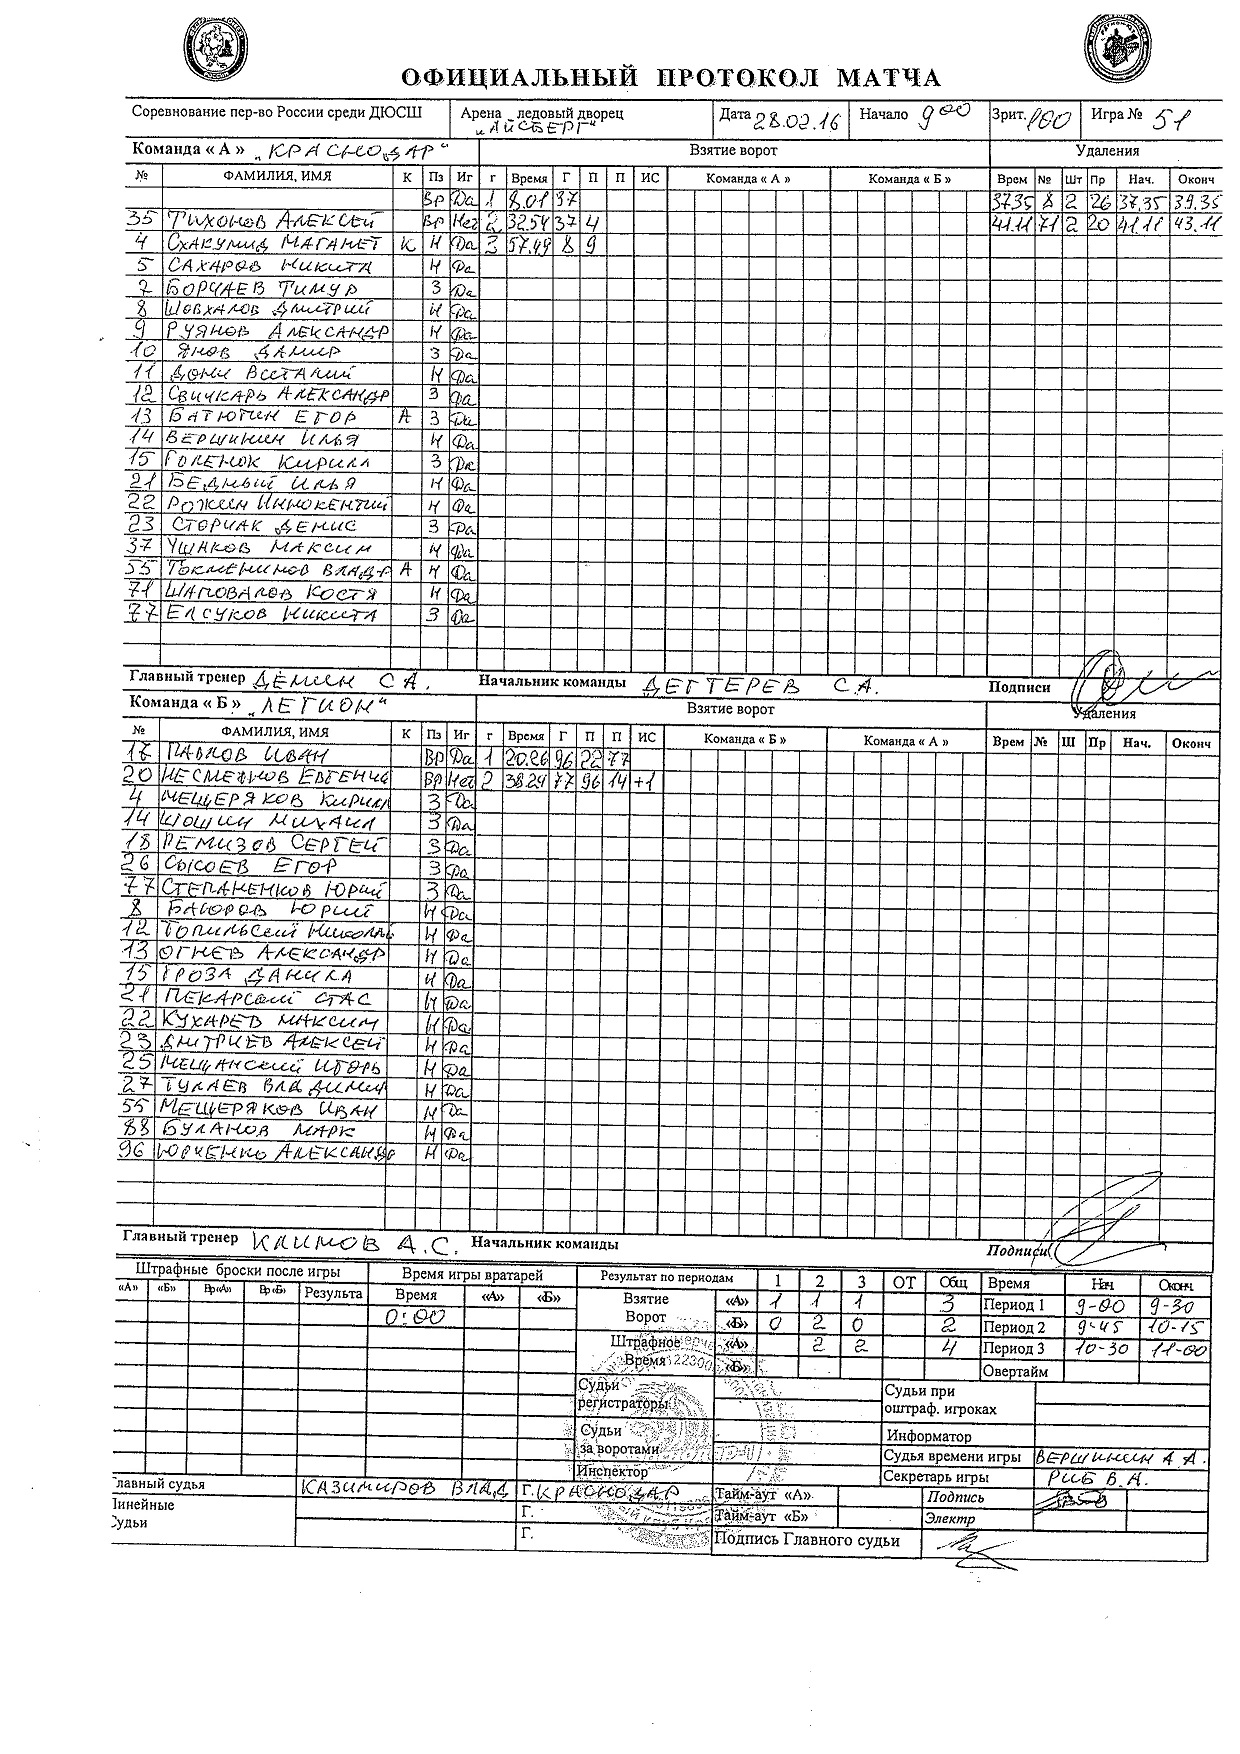 ОФИЦИАЛЬНЫЙ ПРОТОКОЛ МАТЧА
Соревнование пер-во России среди ДЮСШ Арена - ледовый дворец „АЙСБЕРГ“ Дата 28.02.16 Начало 9 00 Зрит. 100 Игра № 51
Команда « А » „КРАСНОДАР“ Взятие ворот Удаления
№ ФАМИЛИЯ, ИМЯ К Пз Иг г Время Г П П ИС Команда « А » Команда « Б » Врем № Шт Пр Нач. Оконч
Вр Да 1 8.01 37 37.35 8 2 26 37.35 39.35
35 ТИХОНОВ АЛЕКСЕЙ Вр Нет 2 32.54 37 4 41.11 71 2 20 41.11 43.11
4 СХАКУМИД МАГАМЕТ К Н Да 3 57.49 8 9
5 САХАРОВ НИКИТА Н Да
7 БОРЧАЕВ ТИМУР З Да
8 ШОВХАЛОВ ДМИТРИЙ Н Да
9 РУЯНОВ АЛЕКСАНДР Н Да
10 ЯНОВ ДАМИР З Да
11 ДОНИ Н Да
12 СВИЧКАРЬ АЛЕКСАНДР З Да
13 БАТЮТИН ЕГОР А З Да
14 ВЕРШИНИН ИЛЬЯ Н Да
15 ГОЛЕНОК КИРИЛЛ З Да
21 БЕДНЫЙ ИЛЬЯ Н Да
22 РОЖИН ИННОКЕНТИЙ Н Да
23 СТОРЧАК ДЕНИС З Да
37 УШАКОВ МАКСИМ Н Да
55 ТОКМЕНИНОВ ВЛАДР А Н Да
71 ШАПОВАЛОВ КОСТЯ Н Да
77 ЕЛСУКОВ НИКИТА З Да
Главный тренер ДЁМИН С А. Начальник команды ДЕГТЕРЕВ С.А. Подписи
Команда « Б » „ЛЕГИОН“ Взятие ворот Удаления
№ ФАМИЛИЯ, ИМЯ К Пз Иг г Время Г П П ИС Команда « Б » Команда « А » Врем № Ш Пр Нач. Оконч
17 ПАВЛОВ ИВАН Вр Да 1 20.26 96 22 77
20 НЕСМЕЯНОВ ЕВГЕНИЙ Вр Нет 2 38.24 77 96 14 +1
4 МЕЩЕРЯКОВ КИРИЛЛ З Да
14 ШОШИН МИХАИЛ З Да
18 РЕМИЗОВ СЕРГЕЙ З Да
26 СЫСОЕВ ЕГОР З Да
77 СТЕПАНЕНКОВ ЮРИЙ З Да
8 БАЮРОВ ЮРИЙ Н Да
12 ТОПИЛЬСКИЙ НИКОЛАЙ Н Да
13 ОГНЕВ АЛЕКСАНДР Н Да
15 ГРОЗА ДАНИЛА Н Да
21 ПЕКАРСКИЙ СТАС Н Да
22 КУХАРЕВ МАКСИМ Н Да
23 ДМИТРИЕВ АЛЕКСЕЙ Н Да
25 МЕЩАНСКИЙ ИГОРЬ Н Да
27 ТУЛАЕВ ВЛАДИМИР Н Да
55 МЕЩЕРЯКОВ ИВАН Н Да
88 БУЛАНОВ МАРК Н Да
96 ЮРЧЕНКО АЛЕКСАНДР Н Да
Главный тренер КЛИМОВ А.С. Начальник команды Подписи
Штрафные броски после игры Время игры вратарей Результат по периодам 1 2 3 ОТ Общ Время Нач Оконч.
«А» «Б» Вр«А» Вр«Б» Результа Время «А» «Б» Взятие «А» 1 1 1 3 Период 1 9-00 9-30
0:00 Ворот «Б» 0 2 0 2 Период 2 9-45 10-15
Штрафное «А» 2 2 4 Период 3 10-30 11-00
Время «Б» Овертайм
Судьи регистраторы Судьи при оштраф. игроках
Судьи за воротами Информатор
Судья времени игры ВЕРШИНИН А А.
Инспектор Секретарь игры РЫБ В.А.
Главный судья КАЗИМИРОВ ВЛАД Г. КРАСНОДАР Тайм-аут «А» Подпись
Линейные Г. Тайм-аут «Б» Электр
Судьи Г. Подпись Главного судьи